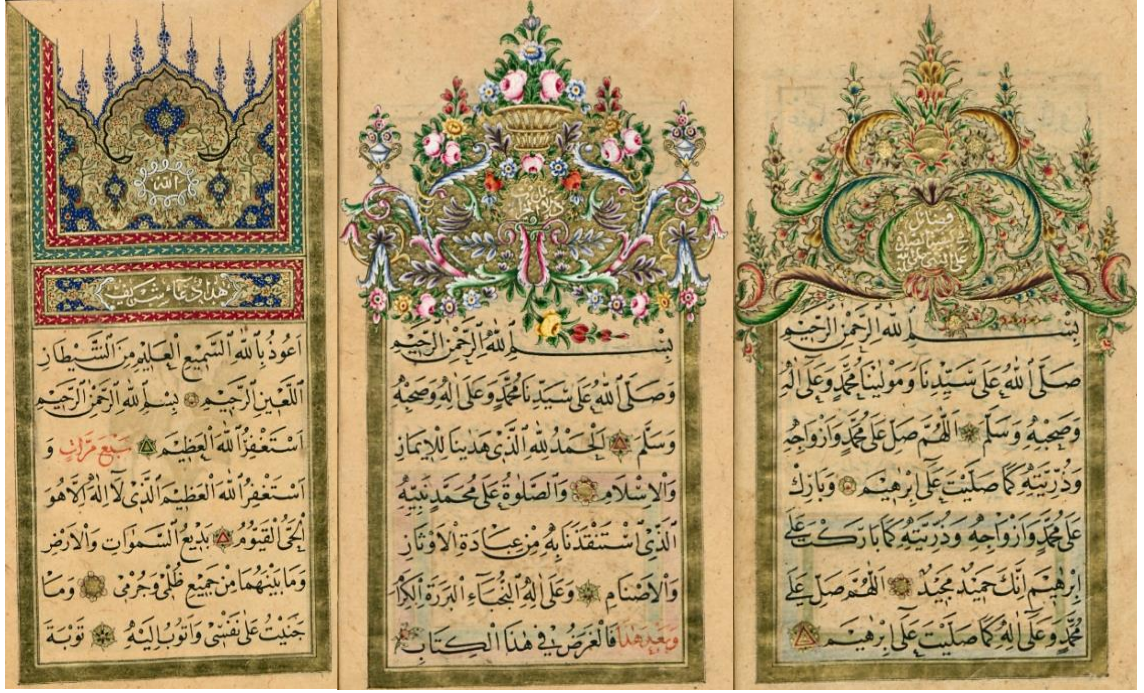 الله
هذا دعاء شريف
اَعُوذُ بِاللّٰهِ السَّمِيعِ الْعَلِيمِ مِنَ الشَّيْطَانِ
اللَّعِينِ الرَّجِيمِ بِسْمِ اللهِ الرَّحْمٰنِ الرَّحِيمِ
اَسْتَغْفِرُ اللّٰهَ الْعَظِيمَ سَبْعَ مَرَّاتٍ وَ
اَسْتَغْفِرُ اللّٰهَ الْعَظِيمَ الَّذِي لَا اِلٰهَ اِلَّا هُوَ
الْحَيُّ الْقَيُّومُ بَدِيعُ السَّمٰوَاتِ وَالْاَرْضِ
وَمَا بَيْنَهُمَا مِنْ جَمِيعِ ظُلْمِي وَجُرْمِي وَمَا
جَنَيْتُ عَلَى نَفْسِي وَاَتُوبُ اِلَيْهِ تَوْبَةَ
بِسْمِ اللهِ الرَّحْمٰنِ الرَّحِيمِ
وَصَلَّى اللّٰهُ عَلٰى سَيِّدِنَا مُحَمَّدٍ وَعَلٰى اٰلِهِ وَصَحْبِهِ
وَسَلَّمَ اَلْحَمْدُ لِلّٰهِ الَّذِي هَدٰينَا لِلْاِيمَانِ
وَالْاِسْلَامِ وَالصَّلٰوةُ عَلٰى مُحَمَّدٍ نَبِيِّهِ
الَّذِي اسْتَنْقَذَنَا بِهِ مِنْ عِبَادَةِ الْاَوْثَانِ
وَالْاَصْنَامِ وَعَلٰى اٰلِهِ النُّجَبَاءِ الْبَرَرَةِ الْكِرَامِ
وَبَعْدَ هٰذَا فَالْغَرَضُ فِي هٰذَا الْكِتَابِ
على النبي صلى الله
بِسْمِ اللهِ الرَّحْمٰنِ الرَّحِيمِ
صَلَّى اللّٰهُ عَلٰى سَيِّدِنَا وَمَوْلٰينَا مُحَمَّدٍ وَعَلٰى اٰلِهِ
وَصَحْبِهِ وَسَلَّمَ اَللّٰهُمَّ صَلِّ عَلٰى مُحَمَّدٍ وَاَزْوَاجِهِ
وَذُرِّيَّتِهِ كَمَا صَلَّيْتَ عَلٰى اِبْرٰهِيمَ وَبَارِكْ
عَلٰى مُحَمَّدٍ وَاَزْوَاجِهِ وَذُرِّيَّتِهِ كَمَا بَارَكْتَ عَلٰى
اِبْرٰهِيمَ اِنَّكَ حَمِيدٌ مَجِيدٌ اَللّٰهُمَّ صَلِّ عَلٰى
مُحَمَّدٍ وَعَلٰى اٰلِهِ كَمَا صَلَّيْتَ عَلٰى اِبْرٰهِيمَ